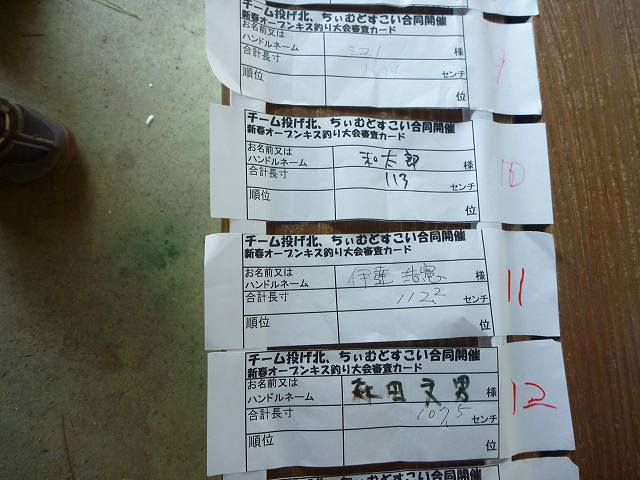 チーム投げ北、ちぃむどすこい合同開催
新春オープンキス釣り大会審査カード
お名前又は
ハンドルネーム 様
合計長寸 センチ
順位 位
9
チーム投げ北、ちぃむどすこい合同開催
新春オープンキス釣り大会審査カード
お名前又は
ハンドルネーム 和太郎 様
合計長寸 113 センチ
順位 位
10
チーム投げ北、ちぃむどすこい合同開催
新春オープンキス釣り大会審査カード
お名前又は
ハンドルネーム 伊藤 様
合計長寸 112.2 センチ
順位 位
11
チーム投げ北、ちぃむどすこい合同開催
新春オープンキス釣り大会審査カード
お名前又は
ハンドルネーム 田又男 様
合計長寸 107.5 センチ
順位 位
12